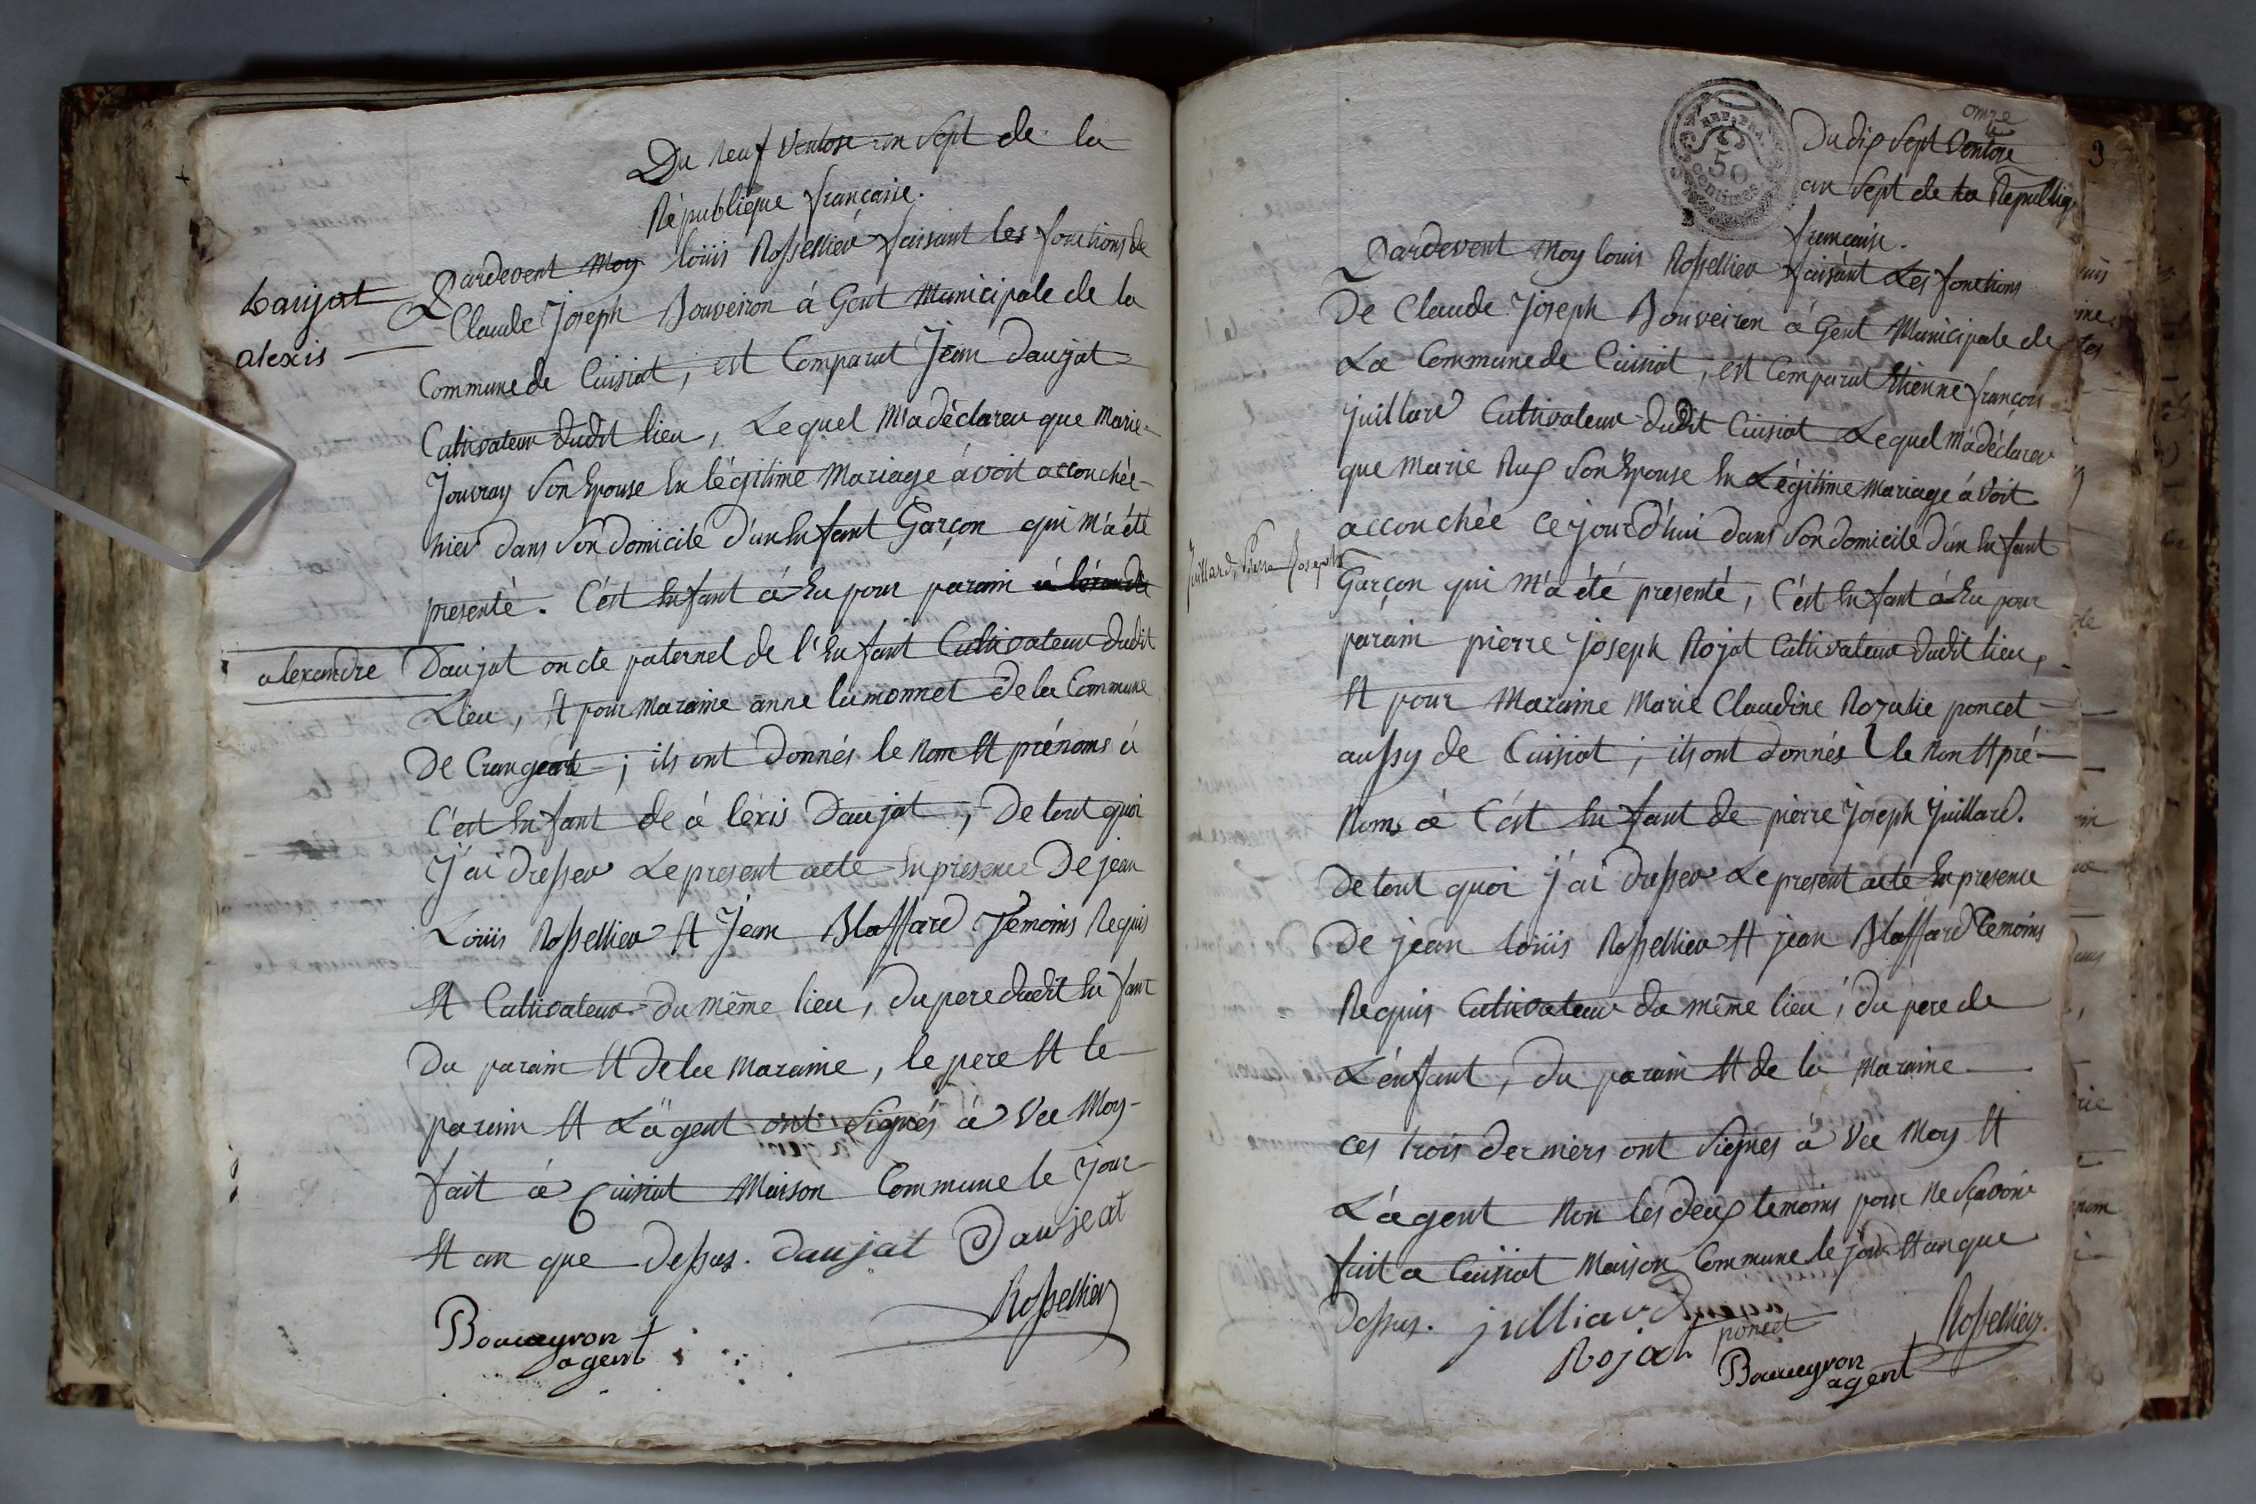 Du neuf Ventose an Sept de la
République française.
Daujat
alexis
Pardevent Moy loüis Rossellier faisant les fonctions de
Claude Joseph Bouveiron à Gent Municipale de la
Commune de Cuisiat, est Comparut Jean Daujat
Cultivateur dudit lieu, Lequel M'a déclarer que Marie
Jouvray Son Epouse En légitime Mariage avoit accouchée
hier dans Son domicile d'un Enfant Garçon qui M'a été
presenté. C'est Enfant à Eu pour parain
alexandre
Daujat oncle paternel de l'Enfant Cultivateur dudit
Lieu, Et pour Maraine anne lumonnet de la Commune
De Crangeat; ils ont donnés le Nom Et prénoms à
C'est Enfant de à léxis Daujat, De tout quoi
J'ai dresser Le present acte En presence De jean
Loüis Rossellier Et Jean Blaffard Temoins Requis
Et Cultivateur du même lieu, du pere dudit Enfant
du parain Et de la Maraine, le pere Et le
parain Et L'agent ont Signés à Vec Moy
fait à Cuisiat Maison Commune le Jour
Et an que dessus. daujat Daujeat
Rossellier
Bouveyron
agent
REP. FRA.
50
centimes
onze
3
Du dix Sept Ventose
an Sept de la Republiq
française.
Pardevent Moy louis Rossellier faisant Les fonctions
De Claude Joseph Bouveiron à Gent Municipale de
La Commune de Cuisiat, est Comparut Etienne françois
Juillard Cultivateur dudit Cuisiat Lequel M'a déclarer
que Marie Rux Son Epouse En Légitime Mariage avoit
accouchée Ce jourd'hui dans Son domicile d'un Enfant
Juillard, Pierre Joseph
Garçon qui M'a été presenté, C'est Enfant à Eu pour
parain pierre Joseph Rojat Cultivateur dudit lieu,
Et pour Maraine Marie Claudine Rozalie poncet
aussy de Cuisiat; ils ont donnés le Nom Et pré-
Noms à C'est Enfant de pierre Joseph Juillard.
De tout quoi j'ai dresser Le present acte En presence
De jean loüis Rossellier Et jean Blaffard temoins
Requis Cultivateur du même lieu, du pere de
L'enfant, du parain Et de la Maraine
Ces trois derniers ont Signes à Vec Moy Et
L'agent Non les deux temoins pour Ne Sçavoir
fait a Cuisiat Maison Commune le jour Et an que
Dessus. julliard poncet
Rojat
Rossellier.
Bouveyron
agent